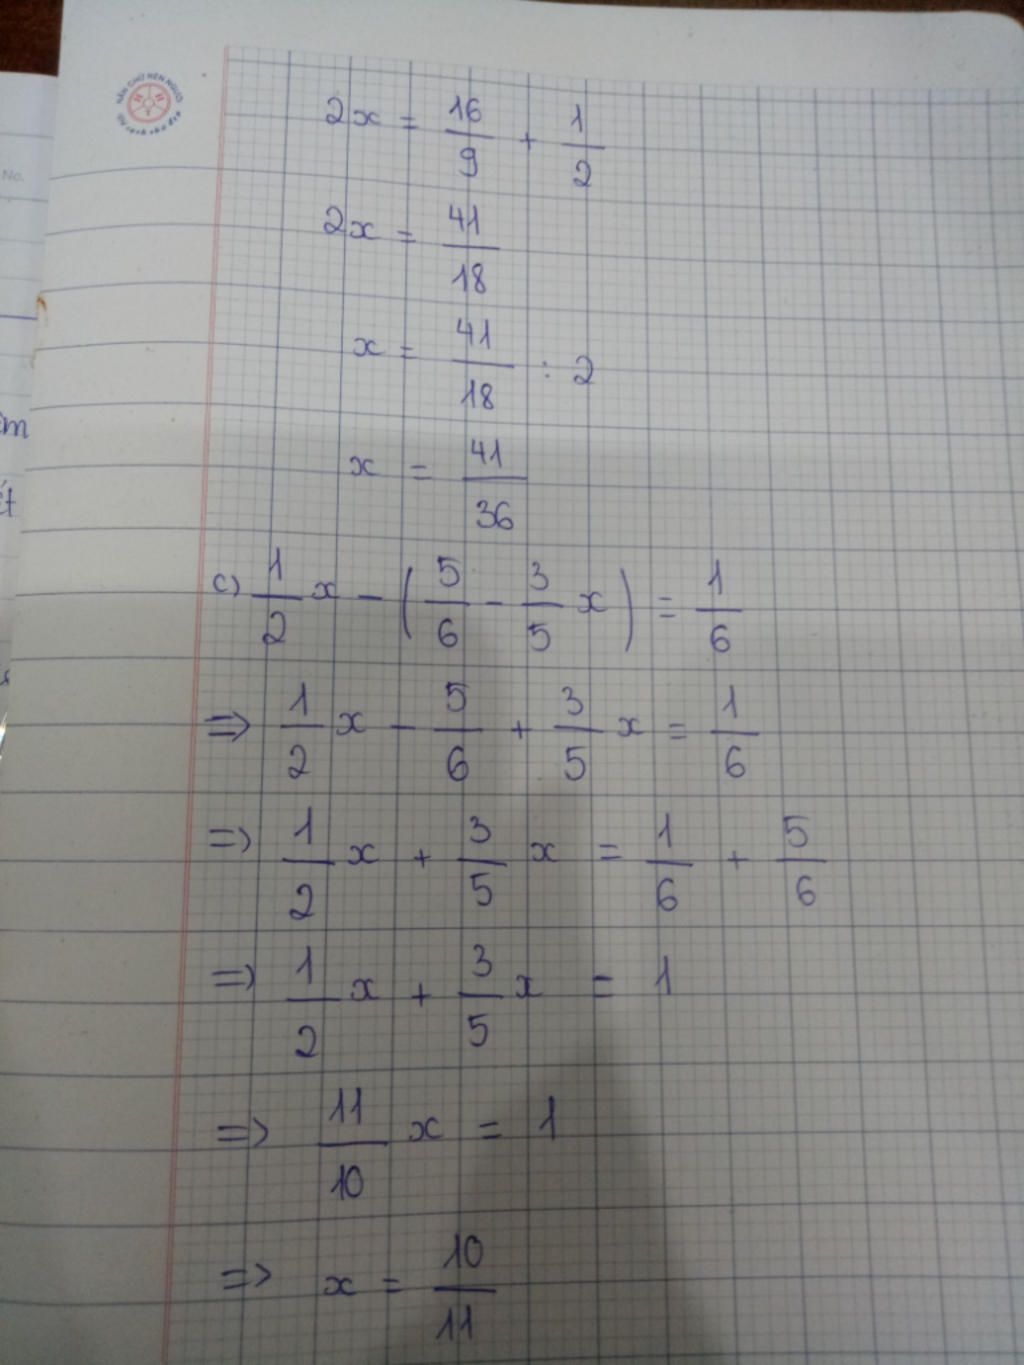 NẮN CHỮ NÊN NGƯỜI
No.
2x = 16/9 + 1/2
2x = 41/18
x = 41/18 : 2
x = 41/36
c) 1/2 x - (5/6 - 3/5 x) = 1/6
=> 1/2 x - 5/6 + 3/5 x = 1/6
=> 1/2 x + 3/5 x = 1/6 + 5/6
=> 1/2 x + 3/5 x = 1
=> 11/10 x = 1
=> x = 10/11